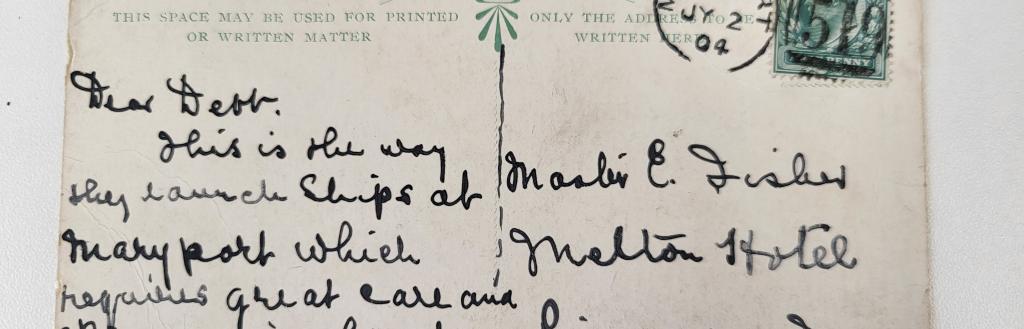 THIS SPACE MAY BE USED FOR PRINTED
OR WRITTEN MATTER
ONLY THE ADDRESS TO BE
WRITTEN HERE
JY 2
04
519
PENNY
Dear Debt.
This is the way
they launch Ships at
Maryport which
requires great care and
Master E. Fisher
Melton Hotel